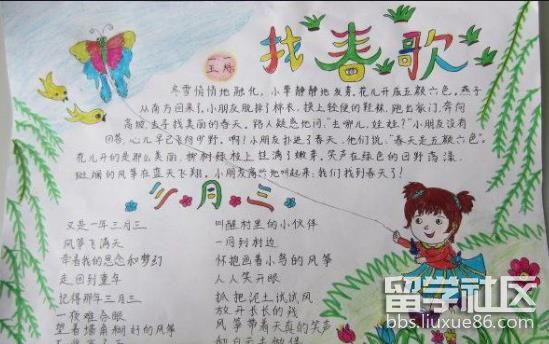 找春歌
冬雪悄悄地融化，小草静静地发芽。花儿开庙五颜六色。燕子
从南方回来了。小朋友脱掉了棉衣，换上轻便的鞋袜，跑出家门，奔向
高坡，去寻找美丽的春天。路人疑惑地问："去哪儿，娃娃？"小朋友没有
回答，心儿早已飞向田野。啊！小朋友扑进了春天，他们说："春天是五颜六色"。
花儿开的是那么美丽，柳树绿枝上挂满了嫩芽，笑声在绿色的田野荡漾，
斑斓的风筝在蓝天飞翔。小朋友高兴地叫起来：我们找到春天了！
三月三
又是一年三月三
风筝飞满天
牵着我的思念和梦幻
走回到童年
记得那年三月三
一夜难合眼
望着墙角糊好的风筝
叫醒村里的小伙伴
一同到村边
怀抱画着小鸟的风筝
人人笑开眼
趴把泥土试试风
放开长长的线
风筝带着天真的笑声
和白云去做伴
留学社区
bbs.liuxue86.com